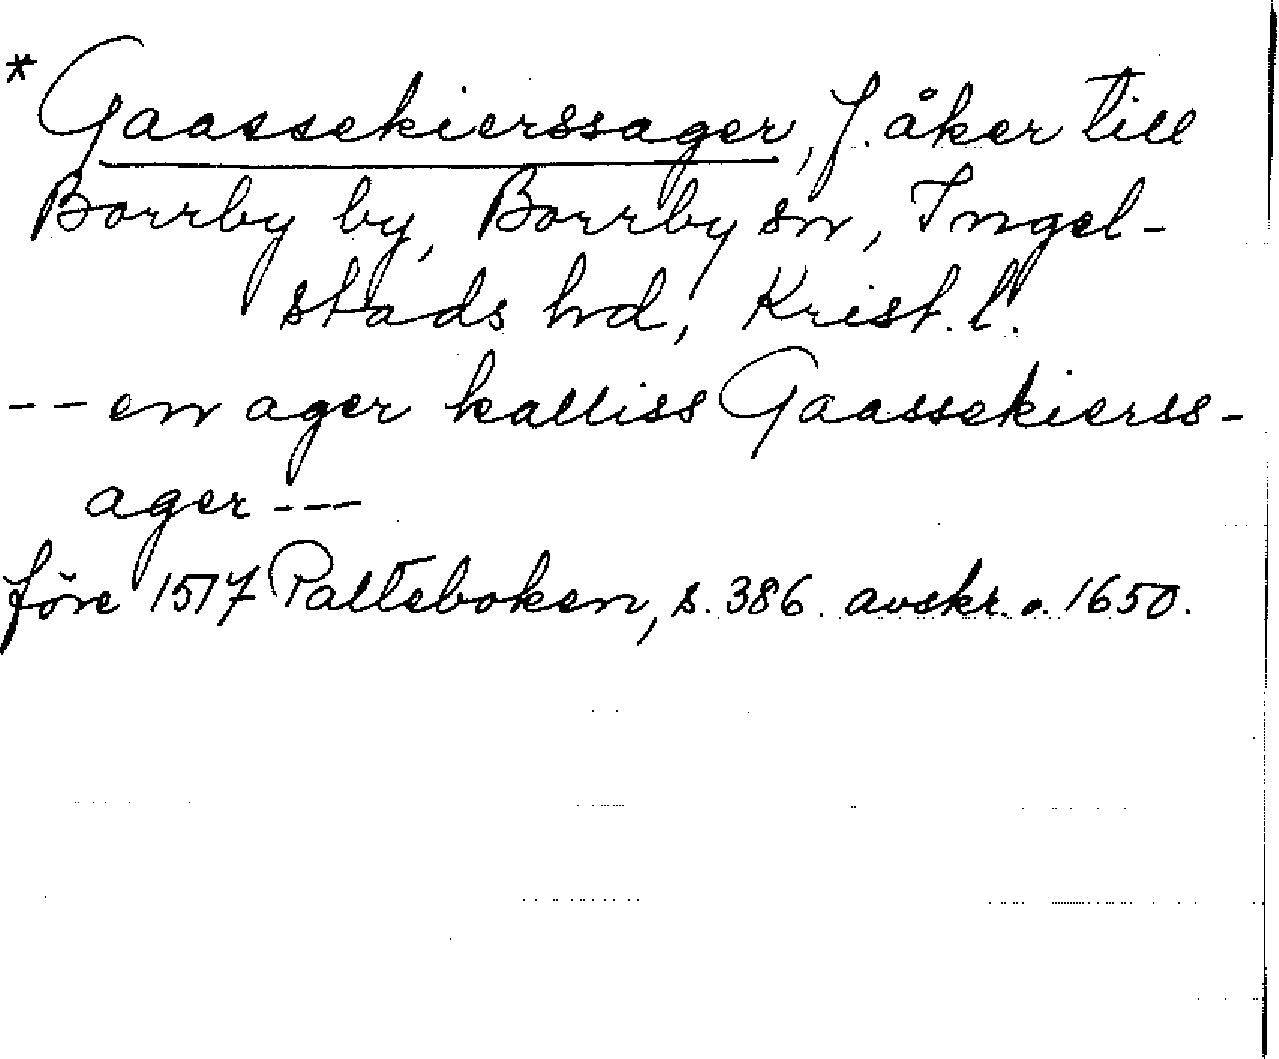 * Gaassekierssager, f. åker till
Borrby by, Borrby sn, Ingel-
stads hd, Krist. l.
-- en ager kalliss Gaassekierss-
ager ---
före 1517 Palteboken, s. 386. avskr. o. 1650.